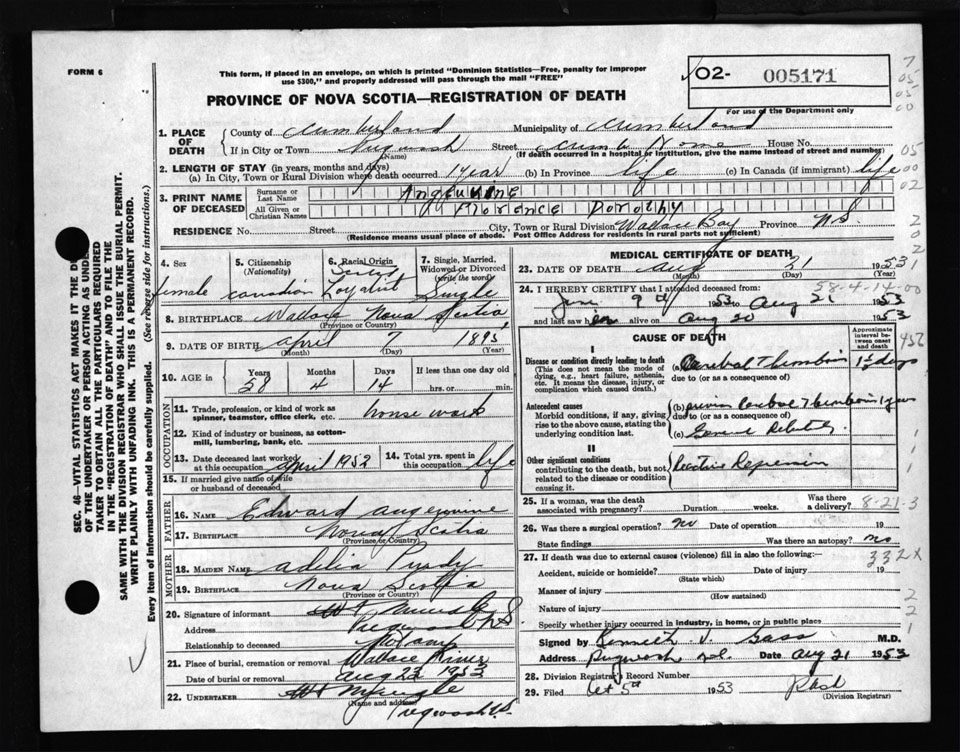 FORM 6
This form, if placed in an envelope, on which is printed "Dominion Statistics—Free, penalty for improper
use $300," and properly addressed will pass through the mail "FREE"
02- 005171
For use of the Department only
7
05
05
00
PROVINCE OF NOVA SCOTIA—REGISTRATION OF DEATH
1. PLACE OF DEATH
County of Cumberland Municipality of Cumberland
If in City or Town Pugwash Street House No.
(Name) (If death occurred in a hospital or institution, give the name instead of street and number)
2. LENGTH OF STAY (in years, months and days)
(a) In City, Town or Rural Division where death occurred 1 year (b) In Province life (c) In Canada (if immigrant) life
05
00
02
3. PRINT NAME OF DECEASED
Surname or Last Name Angevine
All Given or Christian Names Florence Dorothy
RESIDENCE No. Street City, Town or Rural Division Wallace Bay Province N.S.
(Residence means usual place of abode. Post Office Address for residents in rural parts not sufficient)
4. Sex
female
5. Citizenship
(Nationality)
Canadian
6. Racial Origin
Loyalist
7. Single, Married,
Widowed or Divorced
(write the word)
Single
8. BIRTHPLACE Wallace Nova Scotia
(Province or Country)
9. DATE OF BIRTH April 7 1895
(Month) (Day) (Year)
10. AGE in
Years Months Days If less than one day old
58 4 14 hrs. or min.
OCCUPATION
11. Trade, profession, or kind of work as
spinner, teamster, office clerk, etc. house work
12. Kind of industry or business, as cotton-
mill, lumbering, bank, etc.
13. Date deceased last worked
at this occupation April 1952
14. Total yrs. spent in
this occupation life
15. If married give name of wife
or husband of deceased
FATHER
16. NAME Edward Angevine
17. BIRTHPLACE Nova Scotia
(Province or Country)
MOTHER
18. MAIDEN NAME Adelia Purdy
19. BIRTHPLACE Nova Scotia
(Province or Country)
20. Signature of informant
Address Pugwash N S
Relationship to deceased
21. Place of burial, cremation or removal Wallace River
Date of burial or removal Aug 23 1953
22. UNDERTAKER
(Name and address)
Pugwash N.S.
MEDICAL CERTIFICATE OF DEATH
23. DATE OF DEATH Aug 21 1953
(Month) (Day) (Year)
58-4-14-00
24. I HEREBY CERTIFY that I attended deceased from:
June 9th 1953 to Aug 21 1953
and last saw h alive on Aug 20 1953
CAUSE OF DEATH
Approximate
interval be-
tween onset
and death
I
Disease or condition directly leading to death
(This does not mean the mode of
dying, e.g., heart failure, asthenia,
etc. It means the disease, injury, or
complication which caused death.)
(a) Cerebral Thrombosis days
due to (or as a consequence of)
Antecedent causes
Morbid conditions, if any, giving
rise to the above cause, stating the
underlying condition last.
(b) previous Cerebral Thrombosis 1 year
due to (or as a consequence of)
(c) General Debility
II
Other significant conditions
contributing to the death, but not
related to the disease or condition
causing it.
Reactive Depression
25. If a woman, was the death
associated with pregnancy? Duration weeks. Was there
a delivery?
8-21-3
26. Was there a surgical operation? no Date of operation 19
State findings Was there an autopsy? no
27. If death was due to external causes (violence) fill in also the following:—
332X
Accident, suicide or homicide? Date of injury 19
(State which)
Manner of injury
(How sustained)
Nature of injury
Specify whether injury occurred in industry, in home, or in public place
Signed by Kenneth V. Gass M.D.
Address Pugwash N.S. Date Aug 21 1953
28. Division Registrar's Record Number
29. Filed Oct 5th 1953
(Division Registrar)
SEC. 46—VITAL STATISTICS ACT MAKES IT THE D
OF THE UNDERTAKER OR PERSON ACTING AS UNDER-
TAKER TO OBTAIN ALL THE PARTICULARS REQUIRED
IN THE "REGISTRATION OF DEATH" AND TO FILE THE
SAME WITH THE DIVISION REGISTRAR WHO SHALL ISSUE THE BURIAL PERMIT.
WRITE PLAINLY WITH UNFADING INK. THIS IS A PERMANENT RECORD.
Every item of information should be carefully supplied. (See reverse side for instructions.)